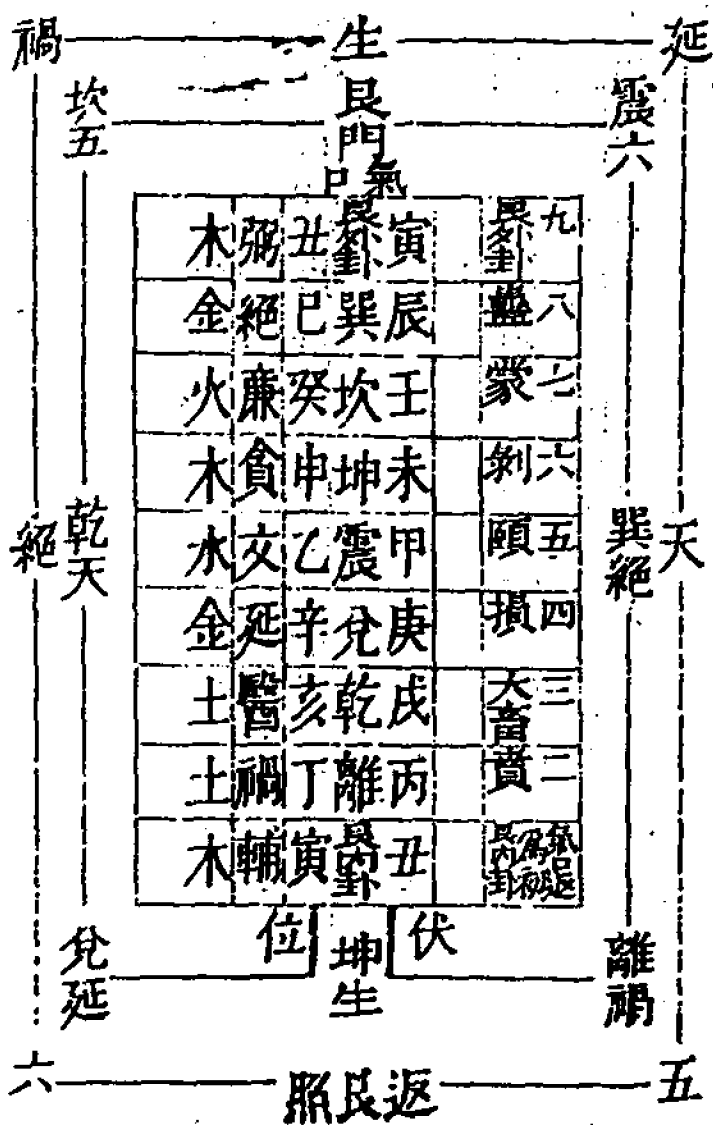 禍 生 延
坎五 艮門 震六
口氣
木 弼 丑 艮外卦 寅 艮外卦 九
金 絕 巳 巽 辰 蠱 八
火 廉 癸 坎 壬 蒙 七
木 貪 申 坤 未 剝 六
水 文 乙 震 甲 頤 五
金 延 辛 兌 庚 損 四
土 醫 亥 乾 戌 大畜 三
土 禍 丁 離 丙 賁 二
木 輔 寅 艮內卦 丑 艮內卦 為初
絕 乾天 巽絕 天
位 伏
兌延 坤生 離禍
六 照艮返 五